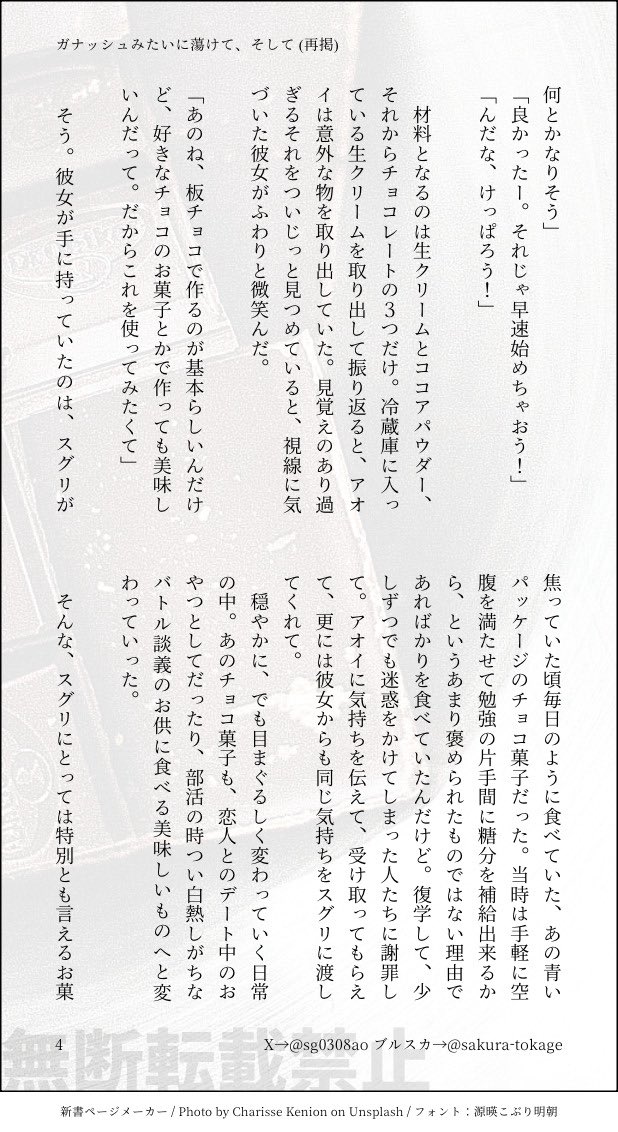 ガナッシュみたいに蕩けて、そして (再掲)
何とかなりそう」
「良かったー。それじゃ早速始めちゃおう！」
「んだな、けっぱろう！」
材料となるのは生クリームとココアパウダー、
それからチョコレートの３つだけ。冷蔵庫に入っ
ている生クリームを取り出して振り返ると、アオ
イは意外な物を取り出していた。見覚えのあり過
ぎるそれをついじっと見つめていると、視線に気
づいた彼女がふわりと微笑んだ。
「あのね、板チョコで作るのが基本らしいんだけ
ど、好きなチョコのお菓子とかで作っても美味し
いんだって。だからこれを使ってみたくて」
そう。彼女が手に持っていたのは、スグリが
焦っていた頃毎日のように食べていた、あの青い
パッケージのチョコ菓子だった。当時は手軽に空
腹を満たせて勉強の片手間に糖分を補給出来るか
ら、というあまり褒められたものではない理由で
あればかりを食べていたんだけど。復学して、少
しずつでも迷惑をかけてしまった人たちに謝罪し
て。アオイに気持ちを伝えて、受け取ってもらえ
て、更には彼女からも同じ気持ちをスグリに渡し
てくれて。
穏やかに、でも目まぐるしく変わっていく日常
の中。あのチョコ菓子も、恋人とのデート中のお
やつとしてだったり、部活の時つい白熱しがちな
バトル談義のお供に食べる美味しいものへと変
わっていった。
そんな、スグリにとっては特別とも言えるお菓
4
X→@sg0308ao ブルスカ→@sakura-tokage
無断転載禁止
新書ページメーカー / Photo by Charisse Kenion on Unsplash / フォント：源暎こぶり明朝